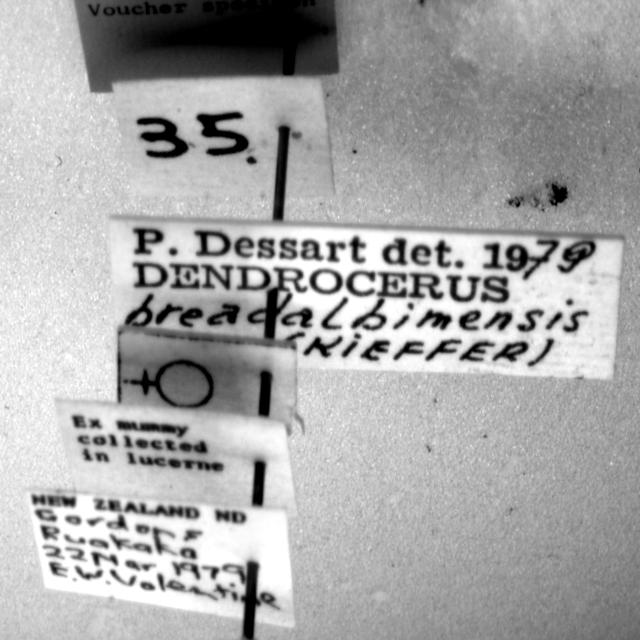 Voucher specimen
35.
P. Dessart det. 1979
DENDROCERUS
breadalbimensis
(KIEFFER)
♀
Ex mummy
collected
in lucerne
NEW ZEALAND ND
Gordons
Ruakaka
22 Mar 1979
E.W.Valentine